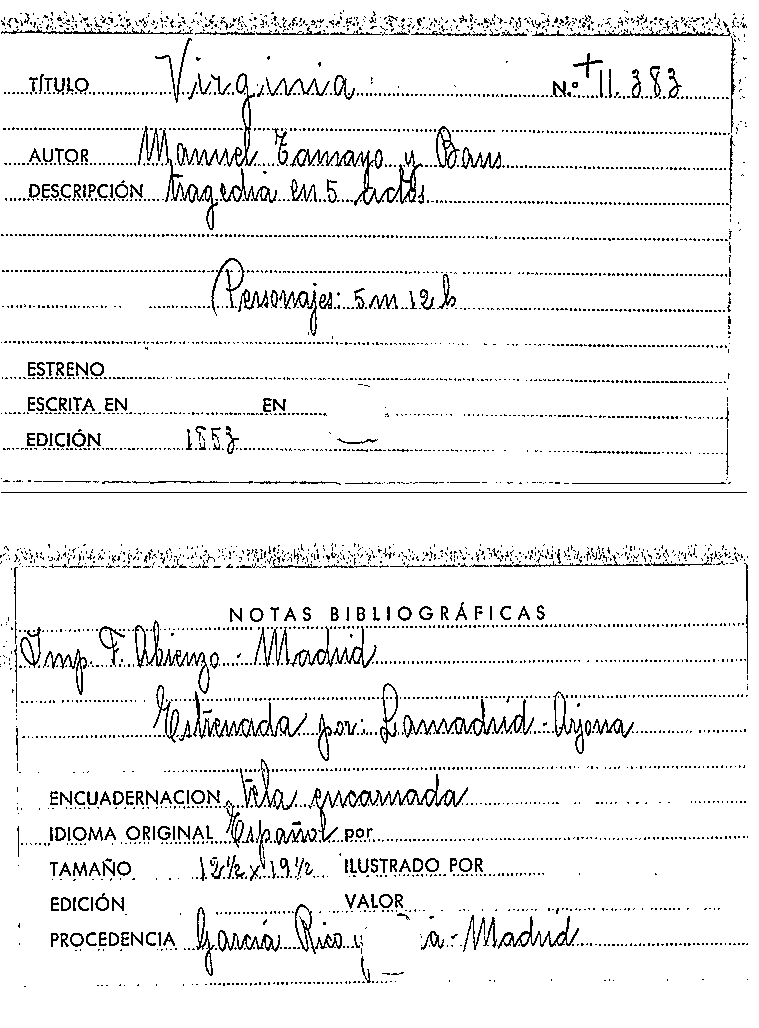 TÍTULO Virginia N.º + 11.383
AUTOR Manuel Tamayo y Baus
DESCRIPCIÓN tragedia en 5 actos
Personajes: 5 m 12 h
ESTRENO
ESCRITA EN EN
EDICIÓN 1853
NOTAS BIBLIOGRÁFICAS
Imp. F. Abienzo - Madrid
Estrenada por: Lamadrid - Arjona
ENCUADERNACION tela encarnada
IDIOMA ORIGINAL Español por
TAMAÑO 12½ x 19½ ILUSTRADO POR
EDICIÓN VALOR
PROCEDENCIA García Rico y a - Madrid